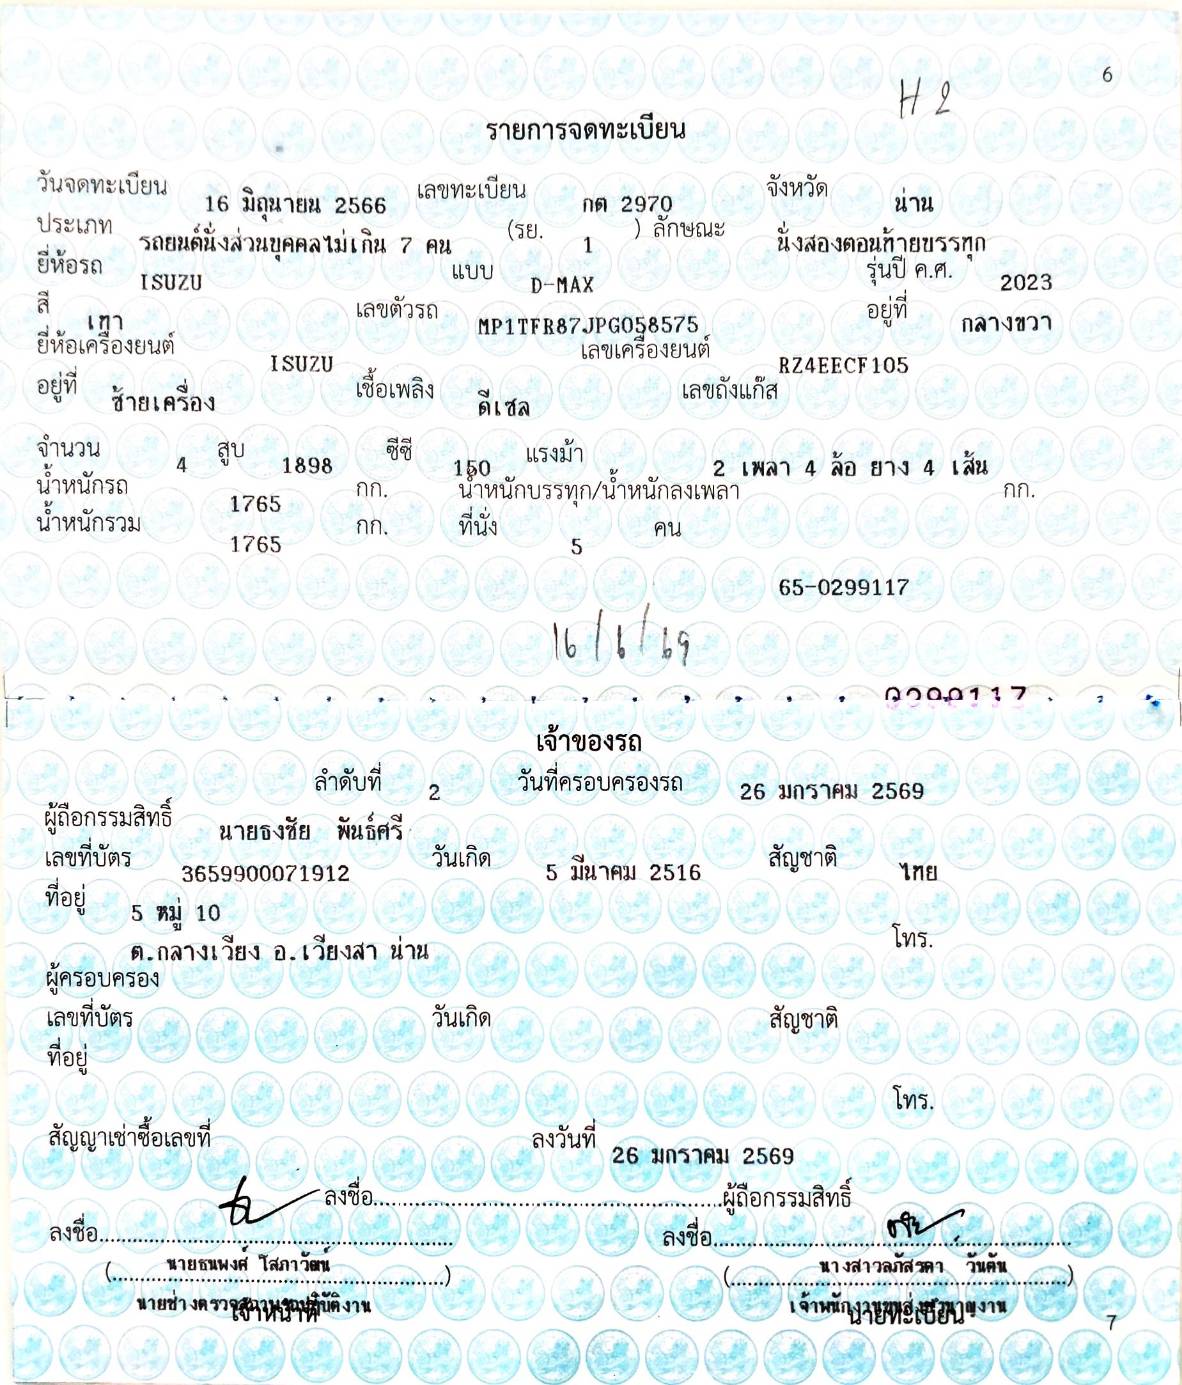 6
H 2
รายการจดทะเบียน
วันจดทะเบียน 16 มิถุนายน 2566 เลขทะเบียน กต 2970 จังหวัด น่าน
ประเภท รถยนต์นั่งส่วนบุคคลไม่เกิน 7 คน (รย. 1 ) ลักษณะ นั่งสองตอนท้ายบรรทุก
ยี่ห้อรถ ISUZU แบบ D-MAX รุ่นปี ค.ศ. 2023
สี เทา เลขตัวรถ MP1TFR87JPG058575 อยู่ที่ กลางขวา
ยี่ห้อเครื่องยนต์ ISUZU เลขเครื่องยนต์ RZ4EECF105
อยู่ที่ ซ้ายเครื่อง เชื้อเพลิง ดีเซล เลขถังแก๊ส
จำนวน 4 สูบ 1898 ซีซี 150 แรงม้า 2 เพลา 4 ล้อ ยาง 4 เส้น
น้ำหนักรถ 1765 กก. น้ำหนักบรรทุก/น้ำหนักลงเพลา กก.
น้ำหนักรวม 1765 กก. ที่นั่ง 5 คน
65-0299117
16/6/69
0299117
เจ้าของรถ
ลำดับที่ 2 วันที่ครอบครองรถ 26 มกราคม 2569
ผู้ถือกรรมสิทธิ์ นายธงชัย พันธ์ศรี
เลขที่บัตร 3659900071912 วันเกิด 5 มีนาคม 2516 สัญชาติ ไทย
ที่อยู่ 5 หมู่ 10
ต.กลางเวียง อ.เวียงสา น่าน โทร.
ผู้ครอบครอง
เลขที่บัตร วันเกิด สัญชาติ
ที่อยู่
โทร.
สัญญาเช่าซื้อเลขที่ ลงวันที่ 26 มกราคม 2569
ลงชื่อ............................................................ผู้ถือกรรมสิทธิ์
ลงชื่อ............................................................ ลงชื่อ............................................................
(นายธนพงศ์ โสภาวัฒน์) (นางสาวลภัสรดา วันต้น)
นายช่างตรวจสภาพรถปฏิบัติงาน เจ้าพนักงานขนส่งชำนาญงาน
เจ้าหน้าที่ นายทะเบียน
7